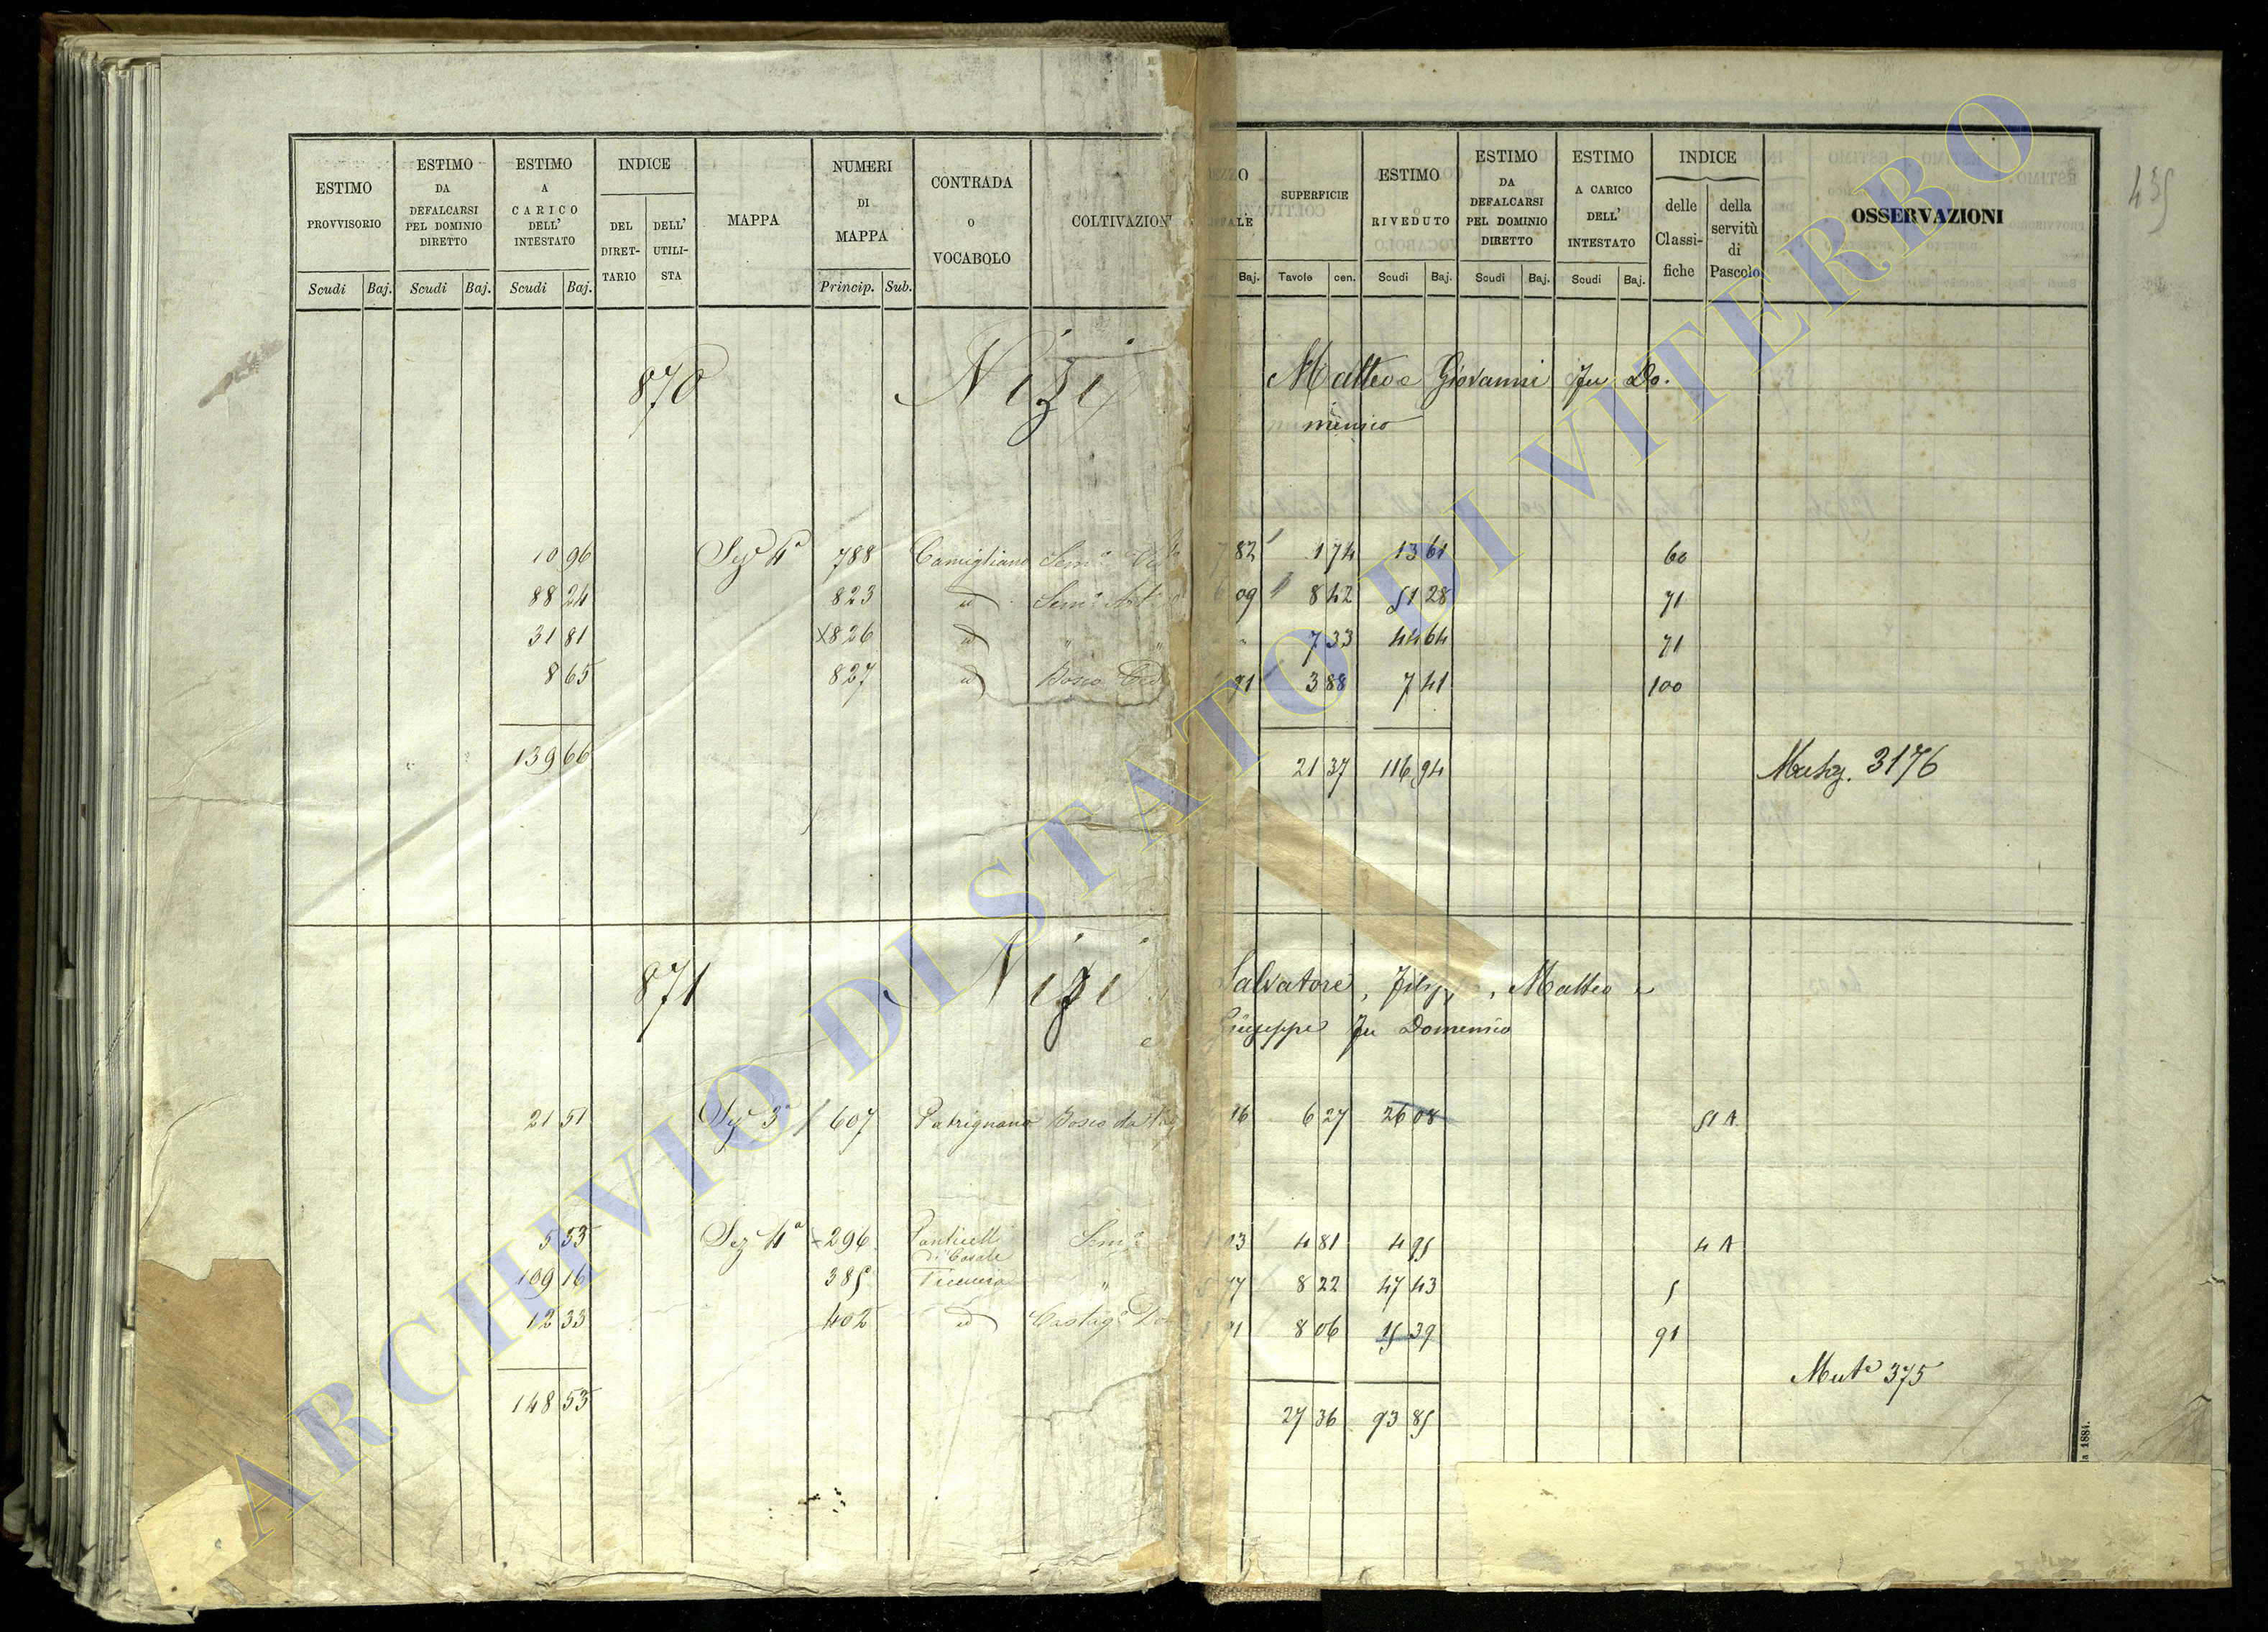 ESTIMO PROVVISORIO
ESTIMO DA DEFALCARSI PEL DOMINIO DIRETTO
ESTIMO A CARICO DELL' INTESTATO
INDICE
DEL DIRET- TARIO
DELL' UTILI- STA
MAPPA
NUMERI DI MAPPA
CONTRADA o VOCABOLO
COLTIVAZION
SUPERFICIE
ESTIMO RIVEDUTO
ESTIMO DA DEFALCARSI PEL DOMINIO DIRETTO
ESTIMO A CARICO DELL' INTESTATO
INDICE
delle Classi- fiche
della servitù di Pascolo
OSSERVAZIONI
435
Scudi Baj. Scudi Baj. Scudi Baj. Princip. Sub. Baj. Tavole cen. Scudi Baj. Scudi Baj. Scudi Baj.
870 Nizi Matteo e Giovanni fu Do.
menico
10 96 Sez 4a 788 Camigliano Sem.o 82 1 74 13 61 60
88 24 823 id Sem.o 09 8 42 51 28 71
31 81 x826 id " " 7 33 44 64 71
8 65 827 id Bosco Ced 91 3 88 7 41 100
139 66 21 37 116 94 3176
871 Nizi Salvatore, Matteo e
Giuseppe fu Domenico
21 51 Sez 3a 607 Patrignano Bosco da 16 6 27 26 08 51 A
5 53 Sez 4a 296 Ponticelli di Casale Sem.o 03 4 81 4 95 4 A
109 16 385 " 77 8 22 47 43 5
12 33 402 id Castag.o 91 8 06 15 39 91
Mut.a 375
148 53 27 36 93 85
a 1884.
ARCHIVIO DI STATO DI VITERBO